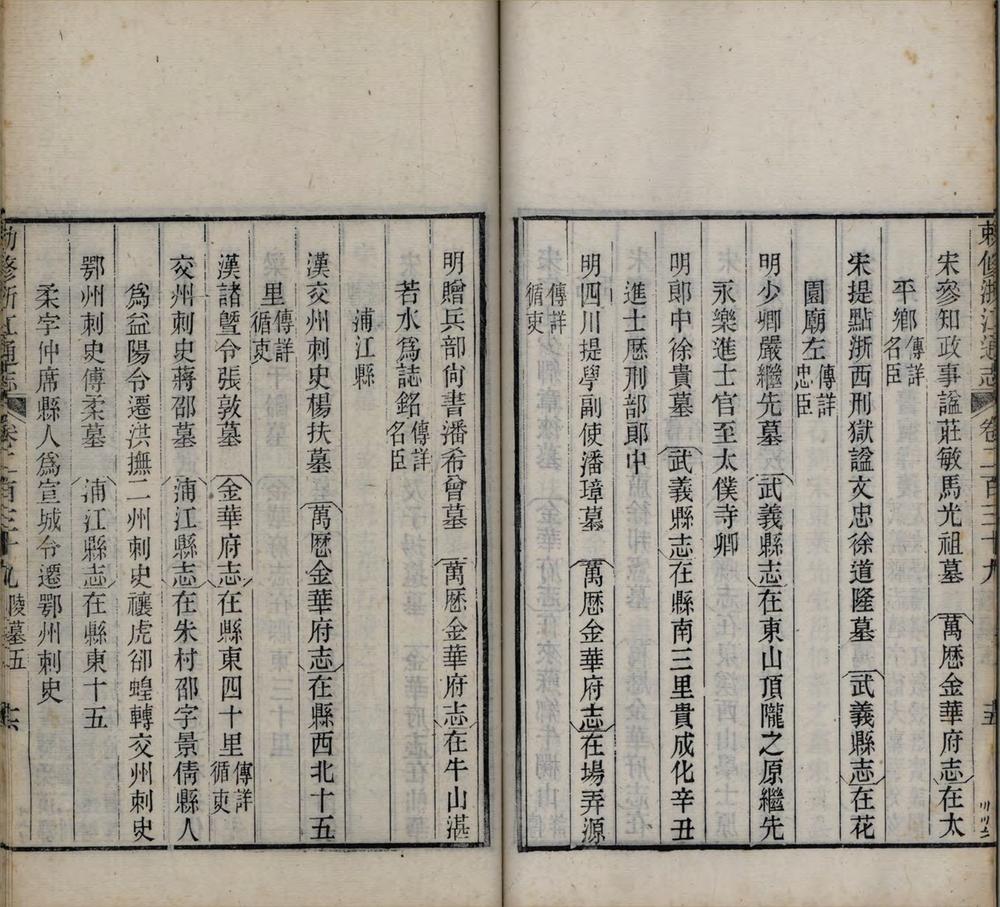 敕修浙江通志 卷二百三十九 十五
宋參知政事諡莊敏馬光祖墓 萬厯金華府志在太
平鄉傳詳名臣
宋提點浙西刑獄諡文忠徐道隆墓 武義縣志在花
園廟左傳詳忠臣
明少卿嚴繼先墓 武義縣志在東山頂隴之原繼先
永樂進士官至太僕寺卿
明郎中徐貴墓 武義縣志在縣南三里貴成化辛丑
進士厯刑部郎中
明四川提學副使潘璋墓 萬厯金華府志在場弄源
傳詳循吏
明贈兵部尙書潘希曾墓 萬厯金華府志在牛山湛
若水爲誌銘傳詳名臣
浦江縣
漢交州刺史楊扶墓 萬厯金華府志在縣西北十五
里傳詳循吏
漢諸曁令張敦墓 金華府志在縣東四十里傳詳循吏
交州刺史蔣邵墓 浦江縣志在朱村邵字景倩縣人
爲益陽令遷洪撫二州刺史禳虎卻蝗轉交州刺史
鄂州刺史傅柔墓 浦江縣志在縣東十五
柔字仲席縣人爲宣城令遷鄂州刺史
敕修浙江通志 卷二百三十九 陵墓五 十六